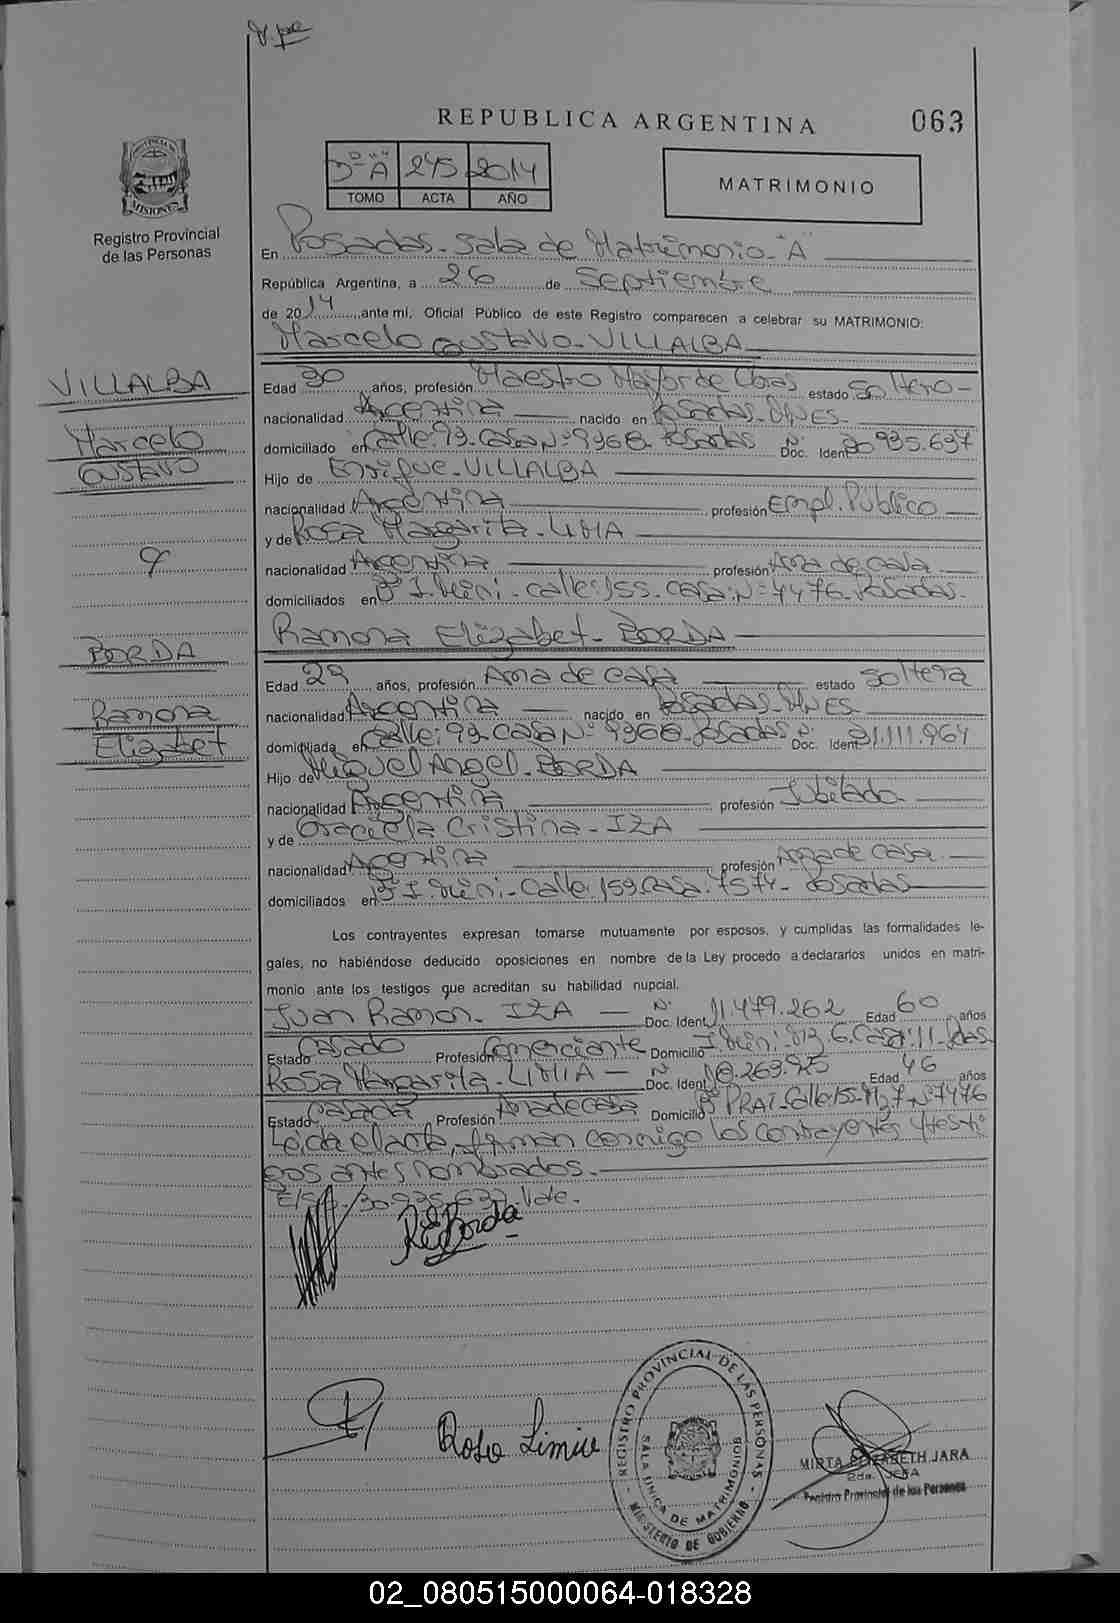 REPUBLICA ARGENTINA
063
PROVINCIA DE
MISIONES
Registro Provincial
de las Personas
3º "A" 245 2014
TOMO ACTA AÑO
MATRIMONIO
En Posadas - Sala de Matrimonio - "A"
República Argentina, a 26 de Septiembre
de 2014 ante mí, Oficial Público de este Registro comparecen a celebrar su MATRIMONIO:
Marcelo Gustavo - VILLALBA
VILLALBA
Marcelo
Gustavo
Edad 30 años, profesión Maestro Mayor de Obras estado Soltero -
nacionalidad Argentina nacido en Posadas - MNES -
domiciliado en Calle: 93 - Casa Nº: 9368 - Posadas Nº Doc. Ident 30.935.637
Hijo de Enrique - VILLALBA
nacionalidad Argentina profesión Empl. Público
y de Rosa Margarita - LIMA
nacionalidad Argentina profesión Ama de casa
domiciliados en Bº I. - calle: 155 - casa: Nº: 7476 - Posadas -
Ramona Elizabet - BORDA
BORDA
Ramona
Elizabet
Edad 29 años, profesión Ama de casa estado Soltera
nacionalidad Argentina nacido en Posadas - MNES
domiciliada en Calle: 93 - Casa Nº 9368 - Posadas Nº Doc. Ident 31.111.964
Hijo de Miguel Angel - BORDA
nacionalidad Argentina profesión Jubilado
y de Graciela Cristina - IZA
nacionalidad Argentina profesión Ama de casa
domiciliados en Bº I. - Calle: 159 casa: 7574 - Posadas
Los contrayentes expresan tomarse mutuamente por esposos, y cumplidas las formalidades le-
gales, no habiéndose deducido oposiciones en nombre de la Ley procedo a declararlos unidos en matri-
monio ante los testigos que acreditan su habilidad nupcial.
Juan Ramon - IZA - Nº Doc. Ident 11.479.262 Edad 60 años
Estado Casado Profesión Comerciante Domicilio 6. Casa: 11 - Pdas
Rosa Margarita - LIMA - Nº Doc. Ident 18.269.925 Edad 46 años
Estado Casada Profesión Ama de casa Domicilio Bº PRAT - Calle 155 - Nº 7476
Leída el acta, firman conmigo los contrayentes y testi
gos antes nombrados. -
E/S: 30.935.637. Vale.
R E Borda
Rosa Limia
REGISTRO PROVINCIAL DE LAS PERSONAS
SALA UNICA DE MATRIMONIOS
MINISTERIO DE GOBIERNO
MIRTA ELIZABETH JARA
2da. JEFA
Registro Provincial de las Personas
02_080515000064-018328